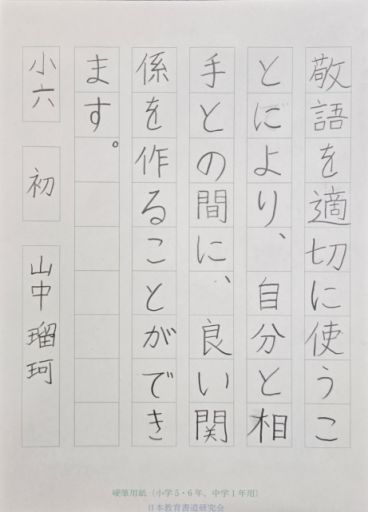 敬語を適切に使うこ
とにより、自分と相
手との間に、良い関
係を作ることができ
ます。
小六 初 山中瑠珂
硬筆用紙（小学5・6年、中学1年用）
日本教育書道研究会